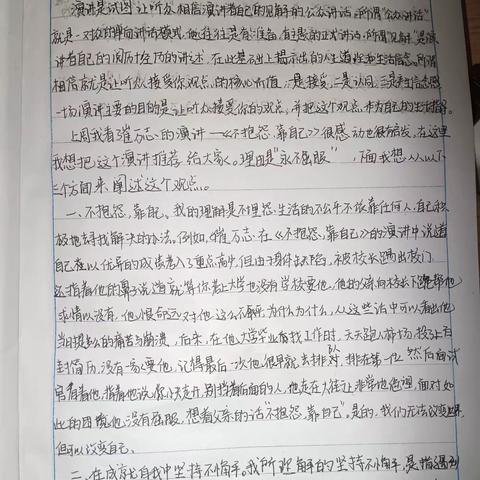 演讲是试图让听众相信演讲者自己的见解的公众讲话。所谓"公众讲话"
就是一对众的单向讲话模式,他往往是有准备,有主题的正式讲话,所谓"见解"是演
讲者自己的阅历+经历的讲述,在此基础上揭示出的人生道理和生活信念。所谓
相信就是"让听众接受你观点的核心价值,一是接受,二是认同,三是
一场演讲主要的目的是让听众接受你的观点,并把这个观点,
上周我看崔万志的演讲——《不抱怨,靠自己》很感动也很有启发,在这里
我想把这个演讲推荐给大家。理由是"永不屈服",下面我想从以下
三个方面来阐述这个观点。
一、不抱怨,靠自己。我的理解是不埋怨生活的不公平不依靠任何人,自己积
极地去寻找解决的办法。例如,崔万志在《不抱怨,靠自己》的演讲中说道
自己在以优异的成绩考入了重点高中,但由于身体缺陷,被校长踢出校门
还指着他的鼻子说道 就等你考上大学也没有学校要他,他的父亲向校长下跪
求情以没有,他很
当时
后来,在他大学毕业后找工作时,天天跑人才市场,投了上百
封简历,没有一家要他,记得最后一次他很早就去排队,排在第一位 然后面试
官看着他,指着他说,你小 走开,别挡着后面的人,他走在大街上非常地
此的困境他没有屈服,想着父亲的话"不抱怨,靠自己"。是的,我们无法改变世界
但可以改变自己、
二、在成就自我中坚持不懈。我所理解的坚持不懈,是指遇到